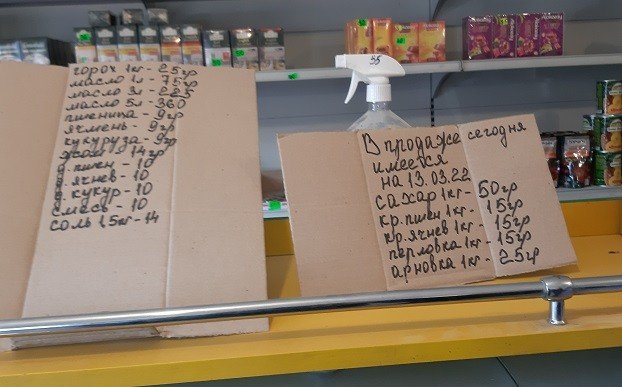 горох 1кг - 25гр
масло 1л - 75гр
масло 3л - 225
масло 5л - 360
пшеница - 9гр
ячмень - 9гр
кукуруза - 9гр
жом - 14гр
д. пшен - 10
д. ячнев - 10
д. кукур - 10
смесь - 10
соль 1,5кг - 14
35
В продаже сегодня
имеется
на 13.03.22
сахар 1кг - 50гр
кр. пшен 1кг - 15гр
кр. ячнев 1кг - 15гр
перловка 1кг - 15гр
арновка 1кг - 25гр